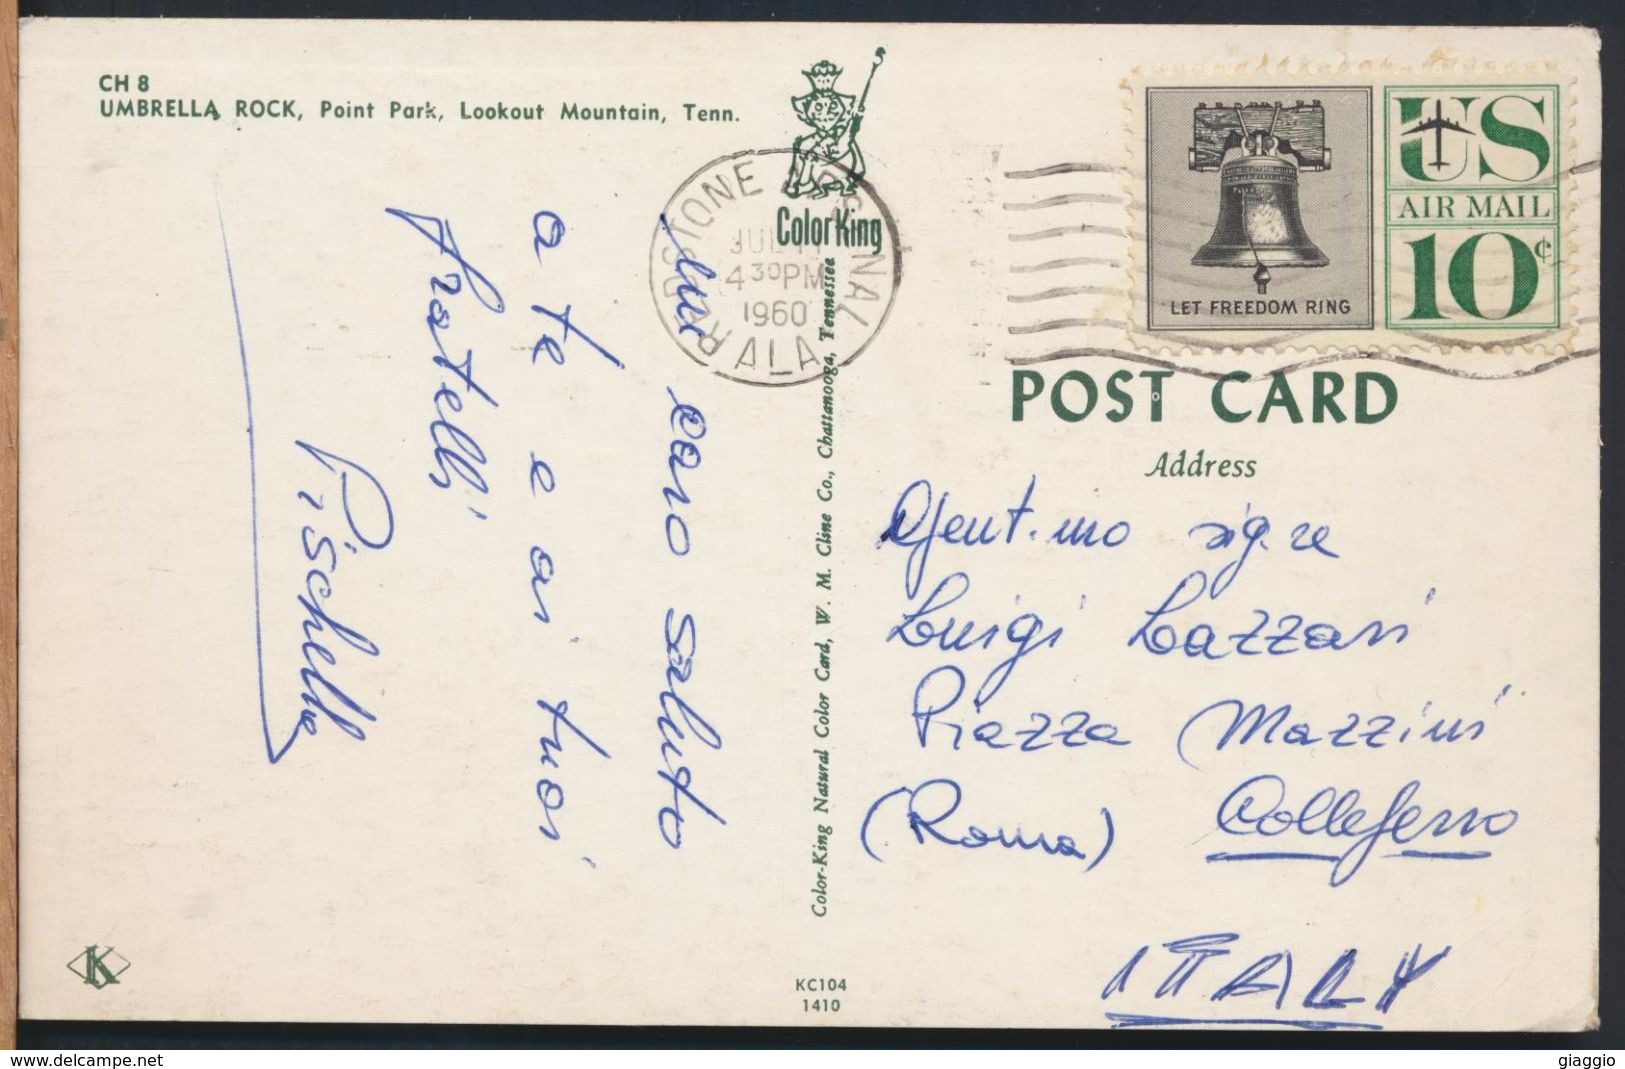 CH 8
UMBRELLA ROCK, Point Park, Lookout Mountain, Tenn.
ColorKing
REDSTONE ARSENAL
JUL
4 30 PM
1960
ALA
LET FREEDOM RING
US
AIR MAIL
10¢
POST CARD
Address
caro saluto
a te e ai tuoi
fratelli
Pischella
Gent.mo sig.re
Luigi Lazzari
Piazza Mazzini
(Roma) Colleferro
ITALY
Color-King Natural Color Card, W. M. Cline Co., Chattanooga, Tennessee
K
KC104
1410
www.delcampe.net
giaggio